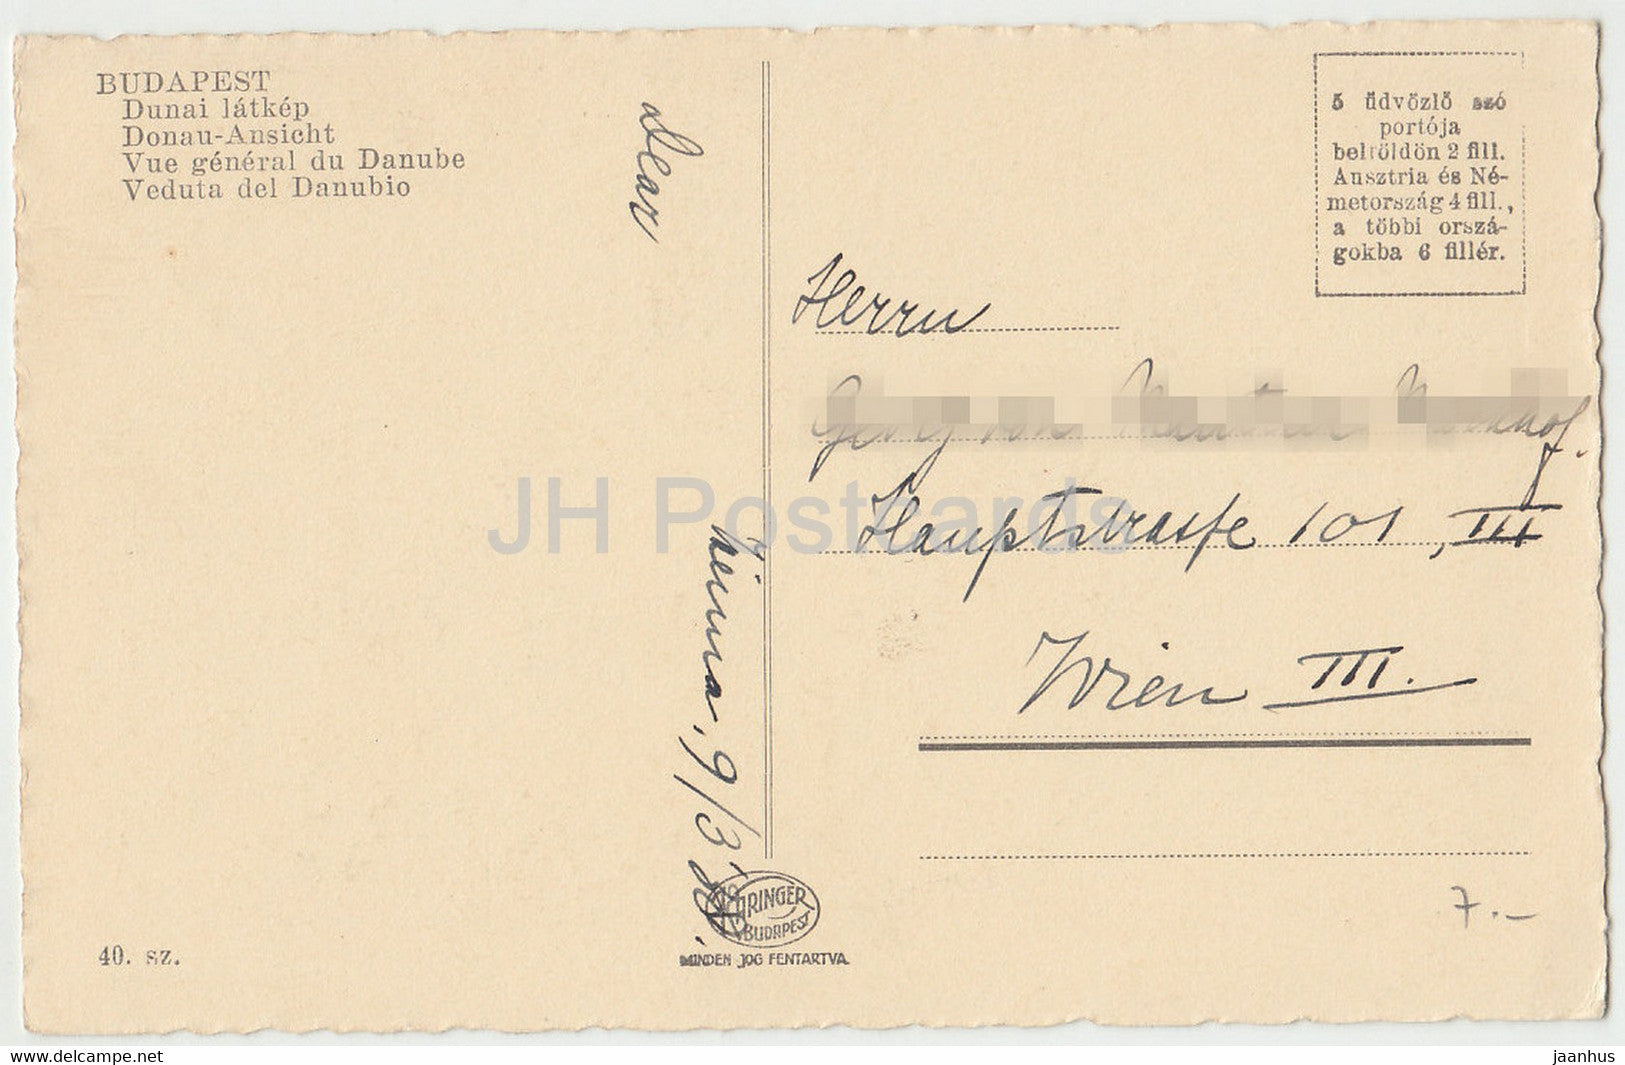 BUDAPEST
Dunai látkép
Donau-Ansicht
Vue général du Danube
Veduta del Danubio
5 üdvözlő szó
portója
belföldön 2 fill.
Ausztria és Né-
metország 4 fill.,
a többi orszá-
gokba 6 fillér.
Dear
Herrn
Georg von
Hauptstrasse 101, III
Wien III.
Vienna, 9/3
7.-
BUDAPEST
MINDEN JOG FENTARTVA
40. sz.
JH Postcards
hippostcard.com
jaanhus